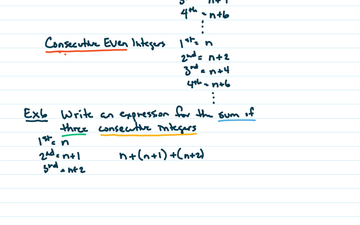 4th = n+6
Consecutive Even Integers 1st = n
2nd = n+2
3rd = n+4
4th = n+6
Ex6 Write an expression for the sum of
three consecutive integers
1st = n
2nd = n+1 n+(n+1)+(n+2)
3rd = n+2